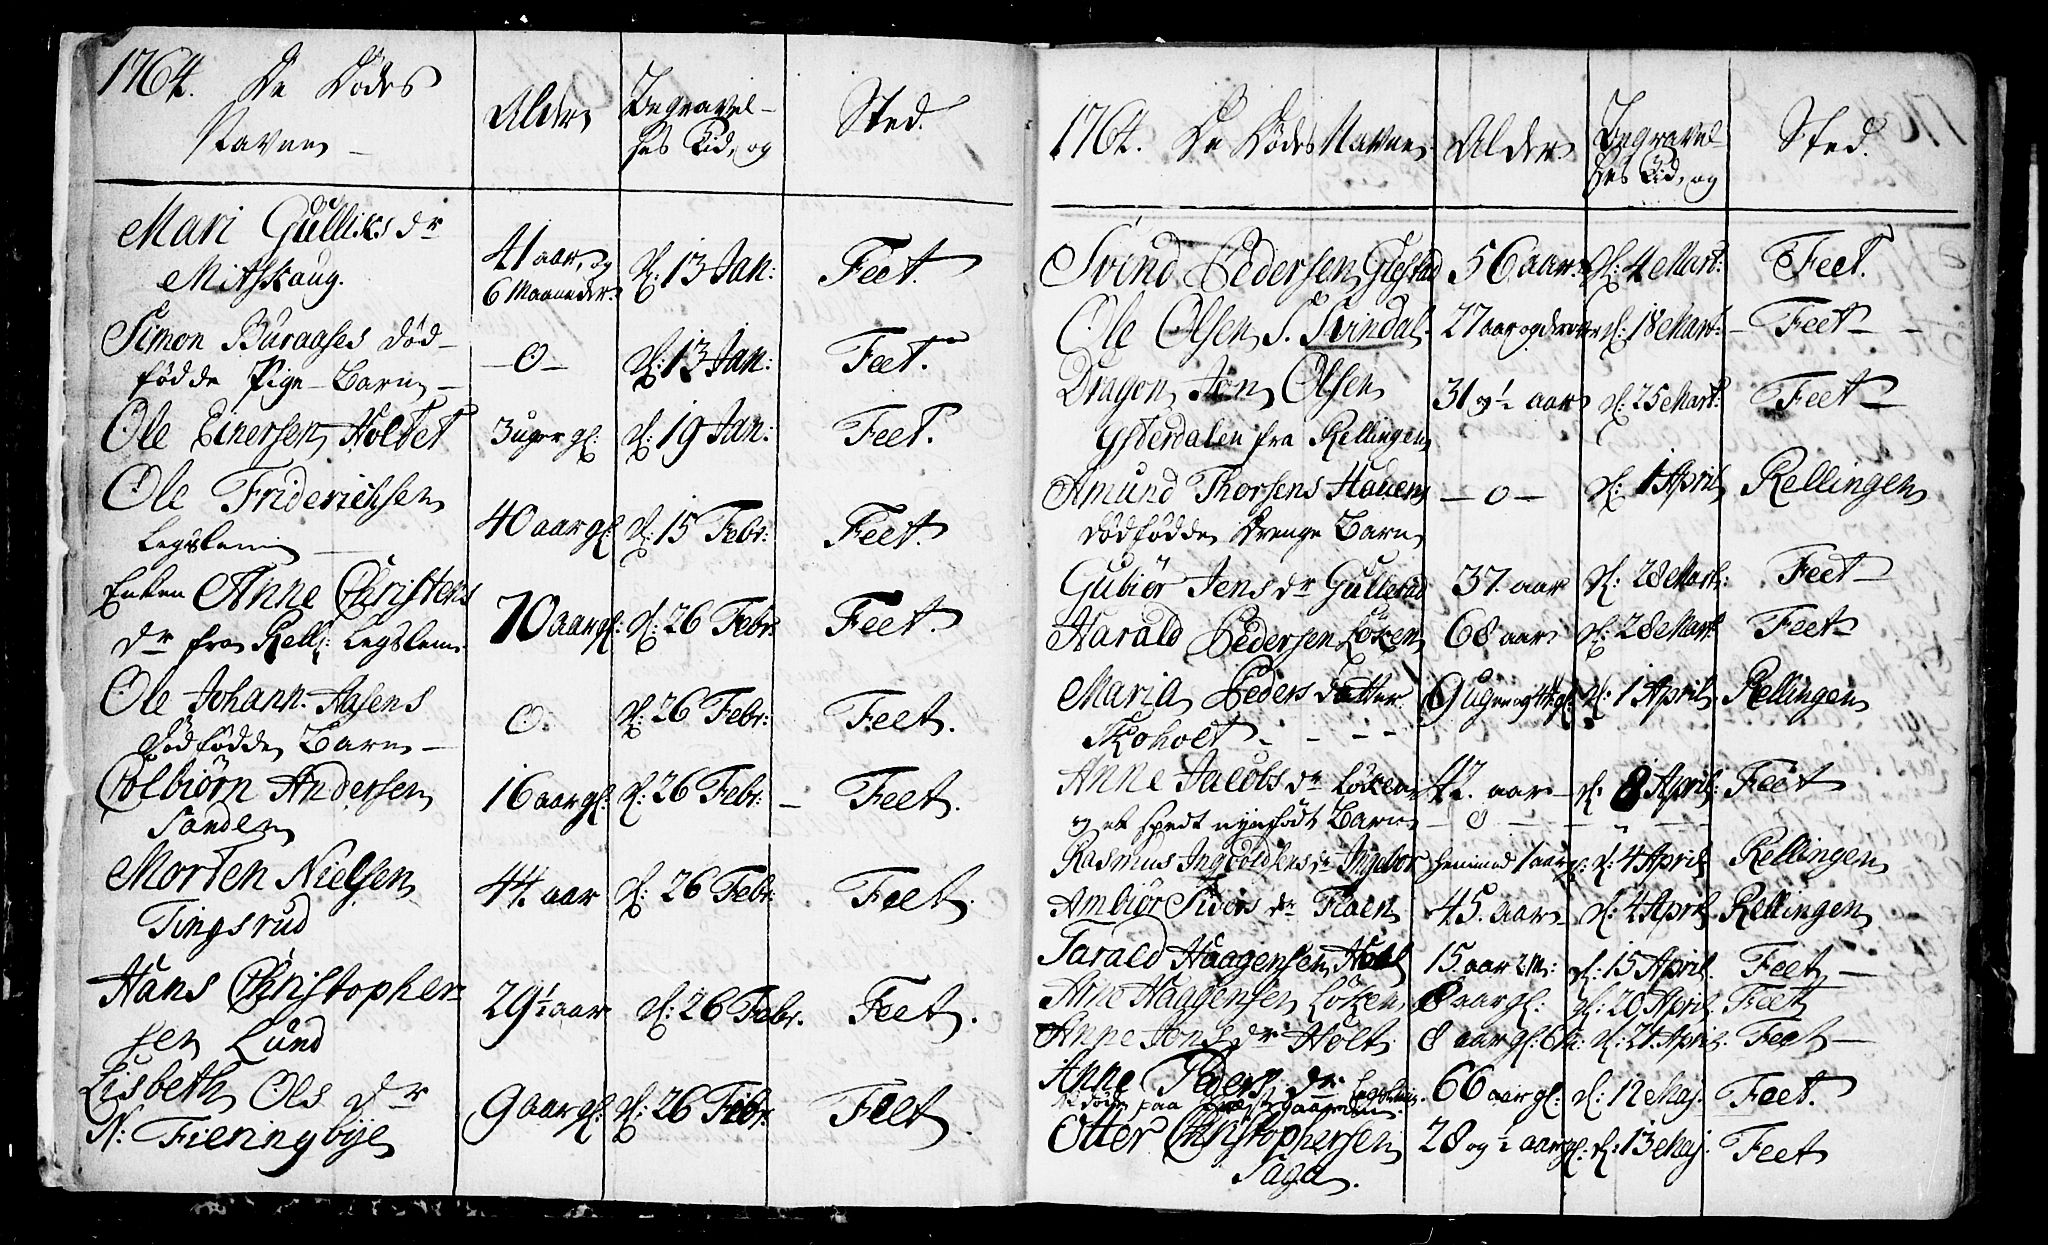 1764. De Dødes
Navne
Alder
Begravel-
ses Tid, og
Sted.
Mari Gulliks dr
Mitskaug.
41 aar, og
6 Maaneder.
d: 13 Jan:
Feet.
Simon Buraases død-
fødde Pige-Barn
- 0 -
d: 13 Jan:
Feet.
Ole Einersen Holtet
3 uger gl:
d: 19 Jan:
Feet.
Ole Friderichsen
Legslem
40 aar gl:
d: 15 Febr:
Feet.
Enken Anne Christens
dr fra Rell: Legslem.
70 aar gl:
d: 26 Febr:
Feet.
Ole Johann. Aasens
dødfødde Barn
0.
d: 26 Febr:
Feet.
Colbiørn Andersen
Sanden
16 aar gl:
d: 26 Febr:
Feet.
Morten Nielsen
Tingsrud
44. aar
d: 26 Febr:
Feet.
Hans Christopher-
sen Lund
29½ aar
d: 26 Febr.
Feet.
Lisbeth Ols dr
N: Fieringbye
9 aar gl:
d: 26 Febr:
Feet
1764. De Dødes Navne.
Alder
Begravel-
ses Tid, og
Sted.
Svind Pedersen Glestad
56 aar
d: 4 Mart:
Feet.
Ole Olsen S. Svindal.
27 aar og derover
d: 18 Mart:
Feet
Dragon Jon Olsen
Ysterdalen fra Rellingen
31 og ½ aar
d: 25 Mart:
Feet
Amund Thorsens Hauen
dødfødde Drenge Barn
- 0 -
d: 1 April
Rellingen
Gubiør Jens dr Gullerud
37. aar
d: 28 Mart:
Feet
Harald Pedersen Løken
68 aar
d: 28 Mart:
Feet
Maria Peders datter
Skoholt
9 uger og
d: 1 April.
Rellingen
Anne Jacobs dr Løken
42. aar
d. 8 April:
Feet
og et spedt nyefødt Barn
- 0 -
Rasmus Ingvoldsens dr Ingebor
henimod 1 aar gl.
d: 4 April
Rellingen
Ambiør Sivers dr Floen
45. aar
d: 4 April
Rellingen
Tarald Haagensen Holt
15. aar 2 M:
d: 15 April.
Feet
Arne Haagensen Løken
8 aar gl:
d: 20 April.
Feet
Anne Jons dr Holt
8 aar gl:
d: 21. April.
Feet
Anne Peders dr Legslem.
døde paa Præstegaarden
66 aar gl:
d: 12 Maj.
Feet.
Otter Christophersen
Saga.
28 og ½ aar gl:
d: 13 Maj:
Feet